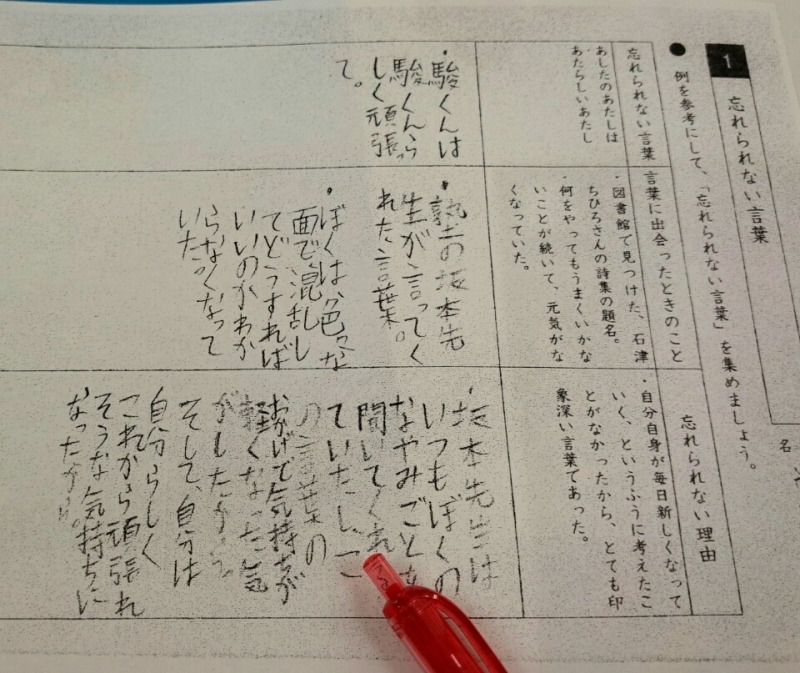 1
忘れられない言葉
● 例を参考にして、「忘れられない言葉」を集めましょう。
忘れられない言葉
言葉に出会ったときのこと
忘れられない理由
あしたのあたしは
あたらしいあたし
・図書館で見つけた、石津
ちひろさんの詩集の題名。
・何をやってもうまくいかな
いことが続いて、元気がな
くなっていた。
・自分自身が毎日新しくなって
いく、というふうに考えたこ
とがなかったから、とても印
象深い言葉であった。
・駿くんは
駿くんら
しく頑張っ
て。
・塾の坂本先
生が言ってく
れた言葉。
・ぼくは、色々な
面で混乱し
てどうすれば
いいのかわか
らなくなって
いた。
・坂本先生は
いつもぼくの
なやみごとを
聞いてくれ
ていたし、こ
の言葉の
おかげで気持ちが
軽くなった気
がしたから。
そして、自分は
自分らしく
これから頑張れ
そうな気持ちに
なったから。
名